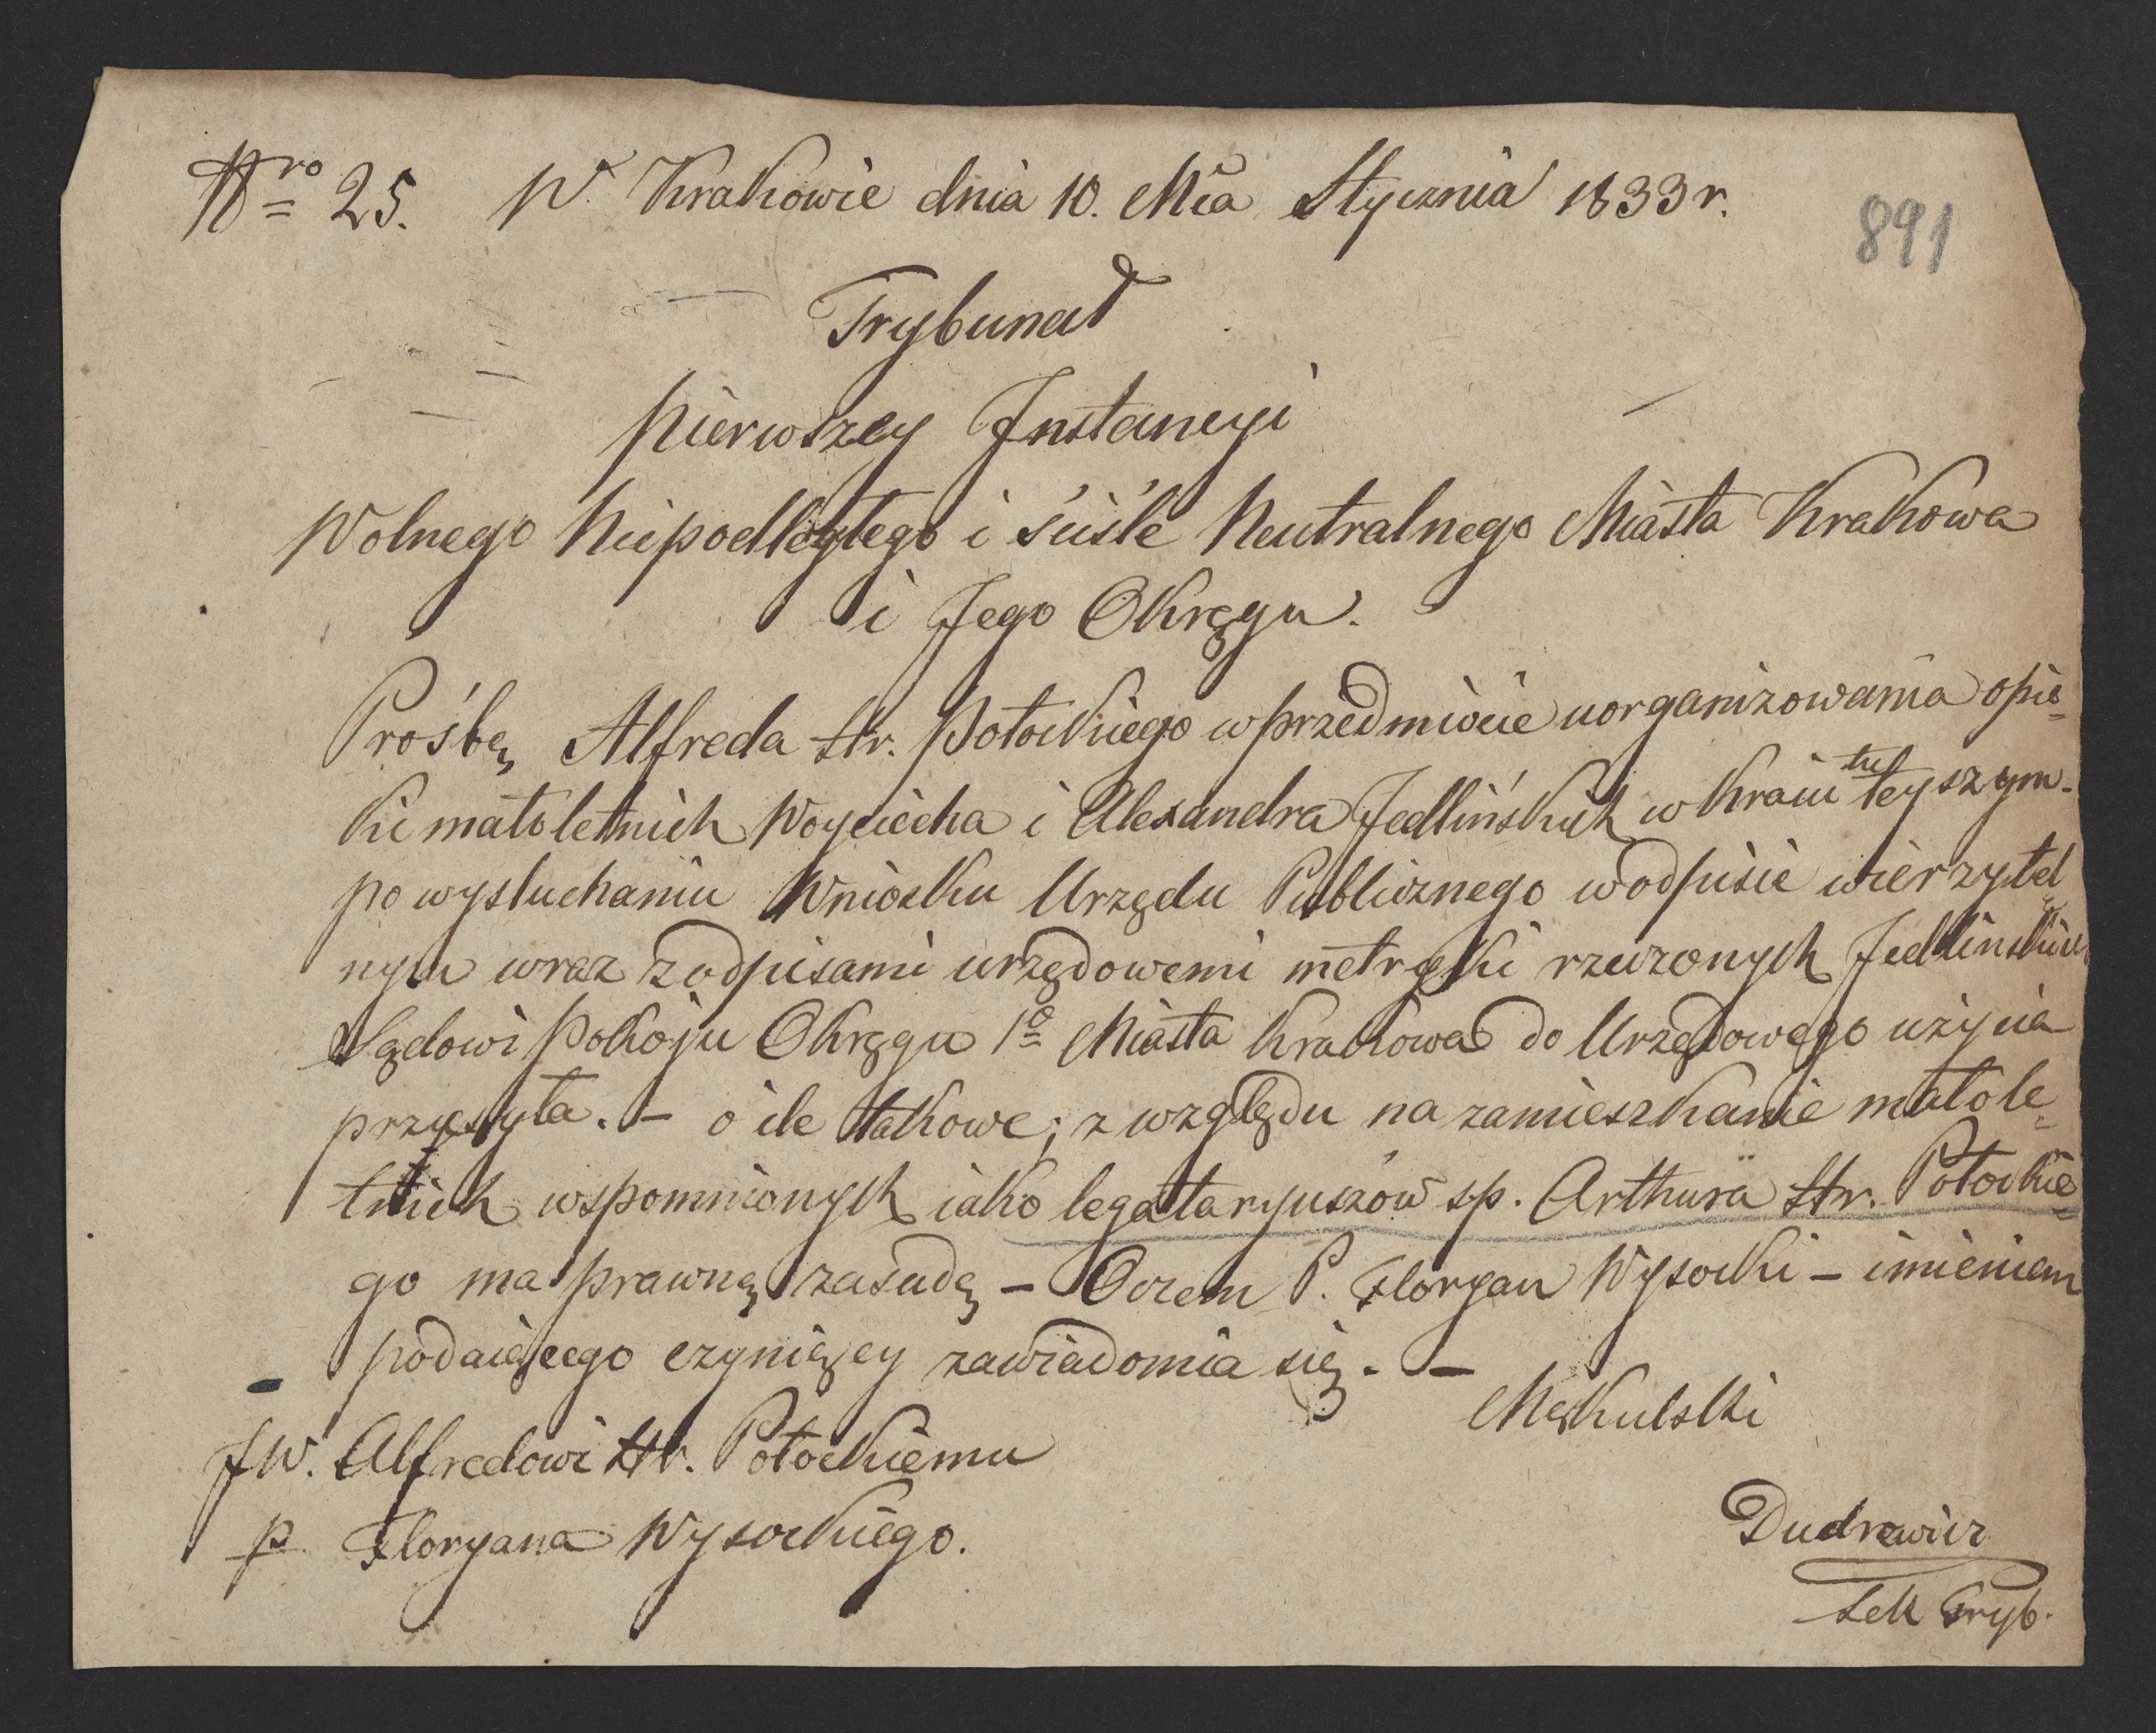 Nro 25. W Krakowie dnia 10. Mca Stycznia 1833 r.
891
Trybunał
pierwszey Instancyi
Wolnego Niepodległego i ściśle Neutralnego Miasta Krakowa
i Jego Okręgu.
Prośbę Alfreda Hr. Potockiego w przedmiocie uorganizowania opie=
ki małoletnich Woyciecha i Alexandra Jedlińskich w Kraiu tuteyszym.
po wysłuchaniu Wniosku Urzędu Publicznego w odpisie wierzytel
nym wraz z odpisami urzędowemi metryki rzeczonych Jedlińskich
Sądowi Pokoju Okręgu 1o Miasta Krakowa do Urzędowego użycia
przesyła. – o ile takowe; z względu na zamieszkanie małole=
tnich wspomnionych iako legataryuszów sp. Arthura Hr. Potockie=
go ma prawną zasadę – Oczem P. Floryan Wysocki – imieniem
podaiącego czyniący zawiadomia się. –
Mękulski
JW. Alfredowi Hr. Potockiemu
p Floryana Wysockiego.
Dudrewicz
Sek Tryb.